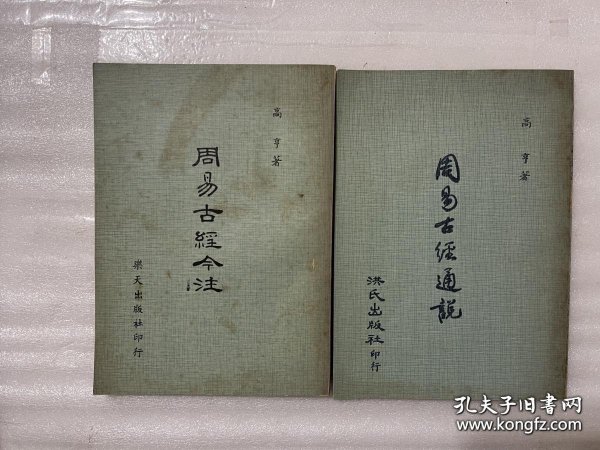 高亨著
周易古經今注
樂天出版社印行
高亨著
周易古經通說
洪氏出版社印行
孔夫子旧书网
www.kongfz.com